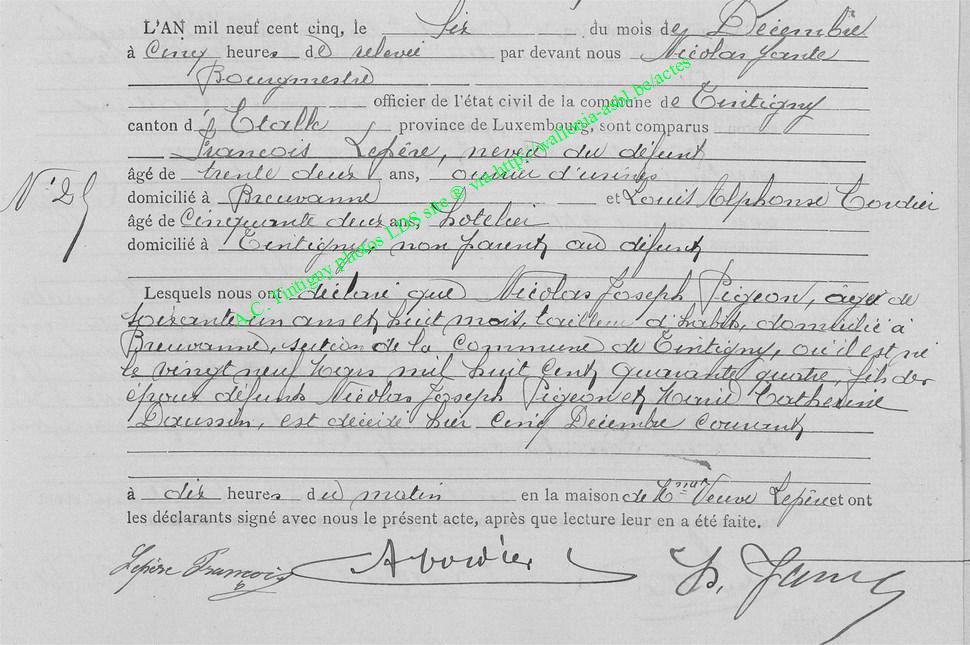 L'AN mil neuf cent cinq, le Six du mois de Décembre
à Cinq heures de relevée par devant nous Nicolas
Bourgmestre
officier de l'état civil de la commune de Tintigny
canton d'Etalle province de Luxembourg, sont comparus
François Lepère, neveu du défunt
âgé de trente deux ans, ouvrier d'usines
domicilié à Breuvanne et Louis Alphonse Cordier
âgé de Cinquante deux ans, hotelier
domicilié à Tintigny, non parent au défunt
N° 25
Lesquels nous ont déclaré que Nicolas Joseph Pigeon, âgé de
soixante un ans et huit mois, tailleur d'habits, domicilié à
Breuvanne, section de la Commune de Tintigny, où il est né
le vingt neuf Mars mil huit Cent quarante quatre, fils des
époux défunts Nicolas Joseph Pigeon et Marie Catherine
est décédé hier Cinq Décembre Courant
à dix heures du matin en la maison de Veuve Lepère et ont
les déclarants signé avec nous le présent acte, après que lecture leur en a été faite.
Lepère François ACordier
A.C. Tintigny photos LDS site ® via http://wallonia-asbl.be/actes